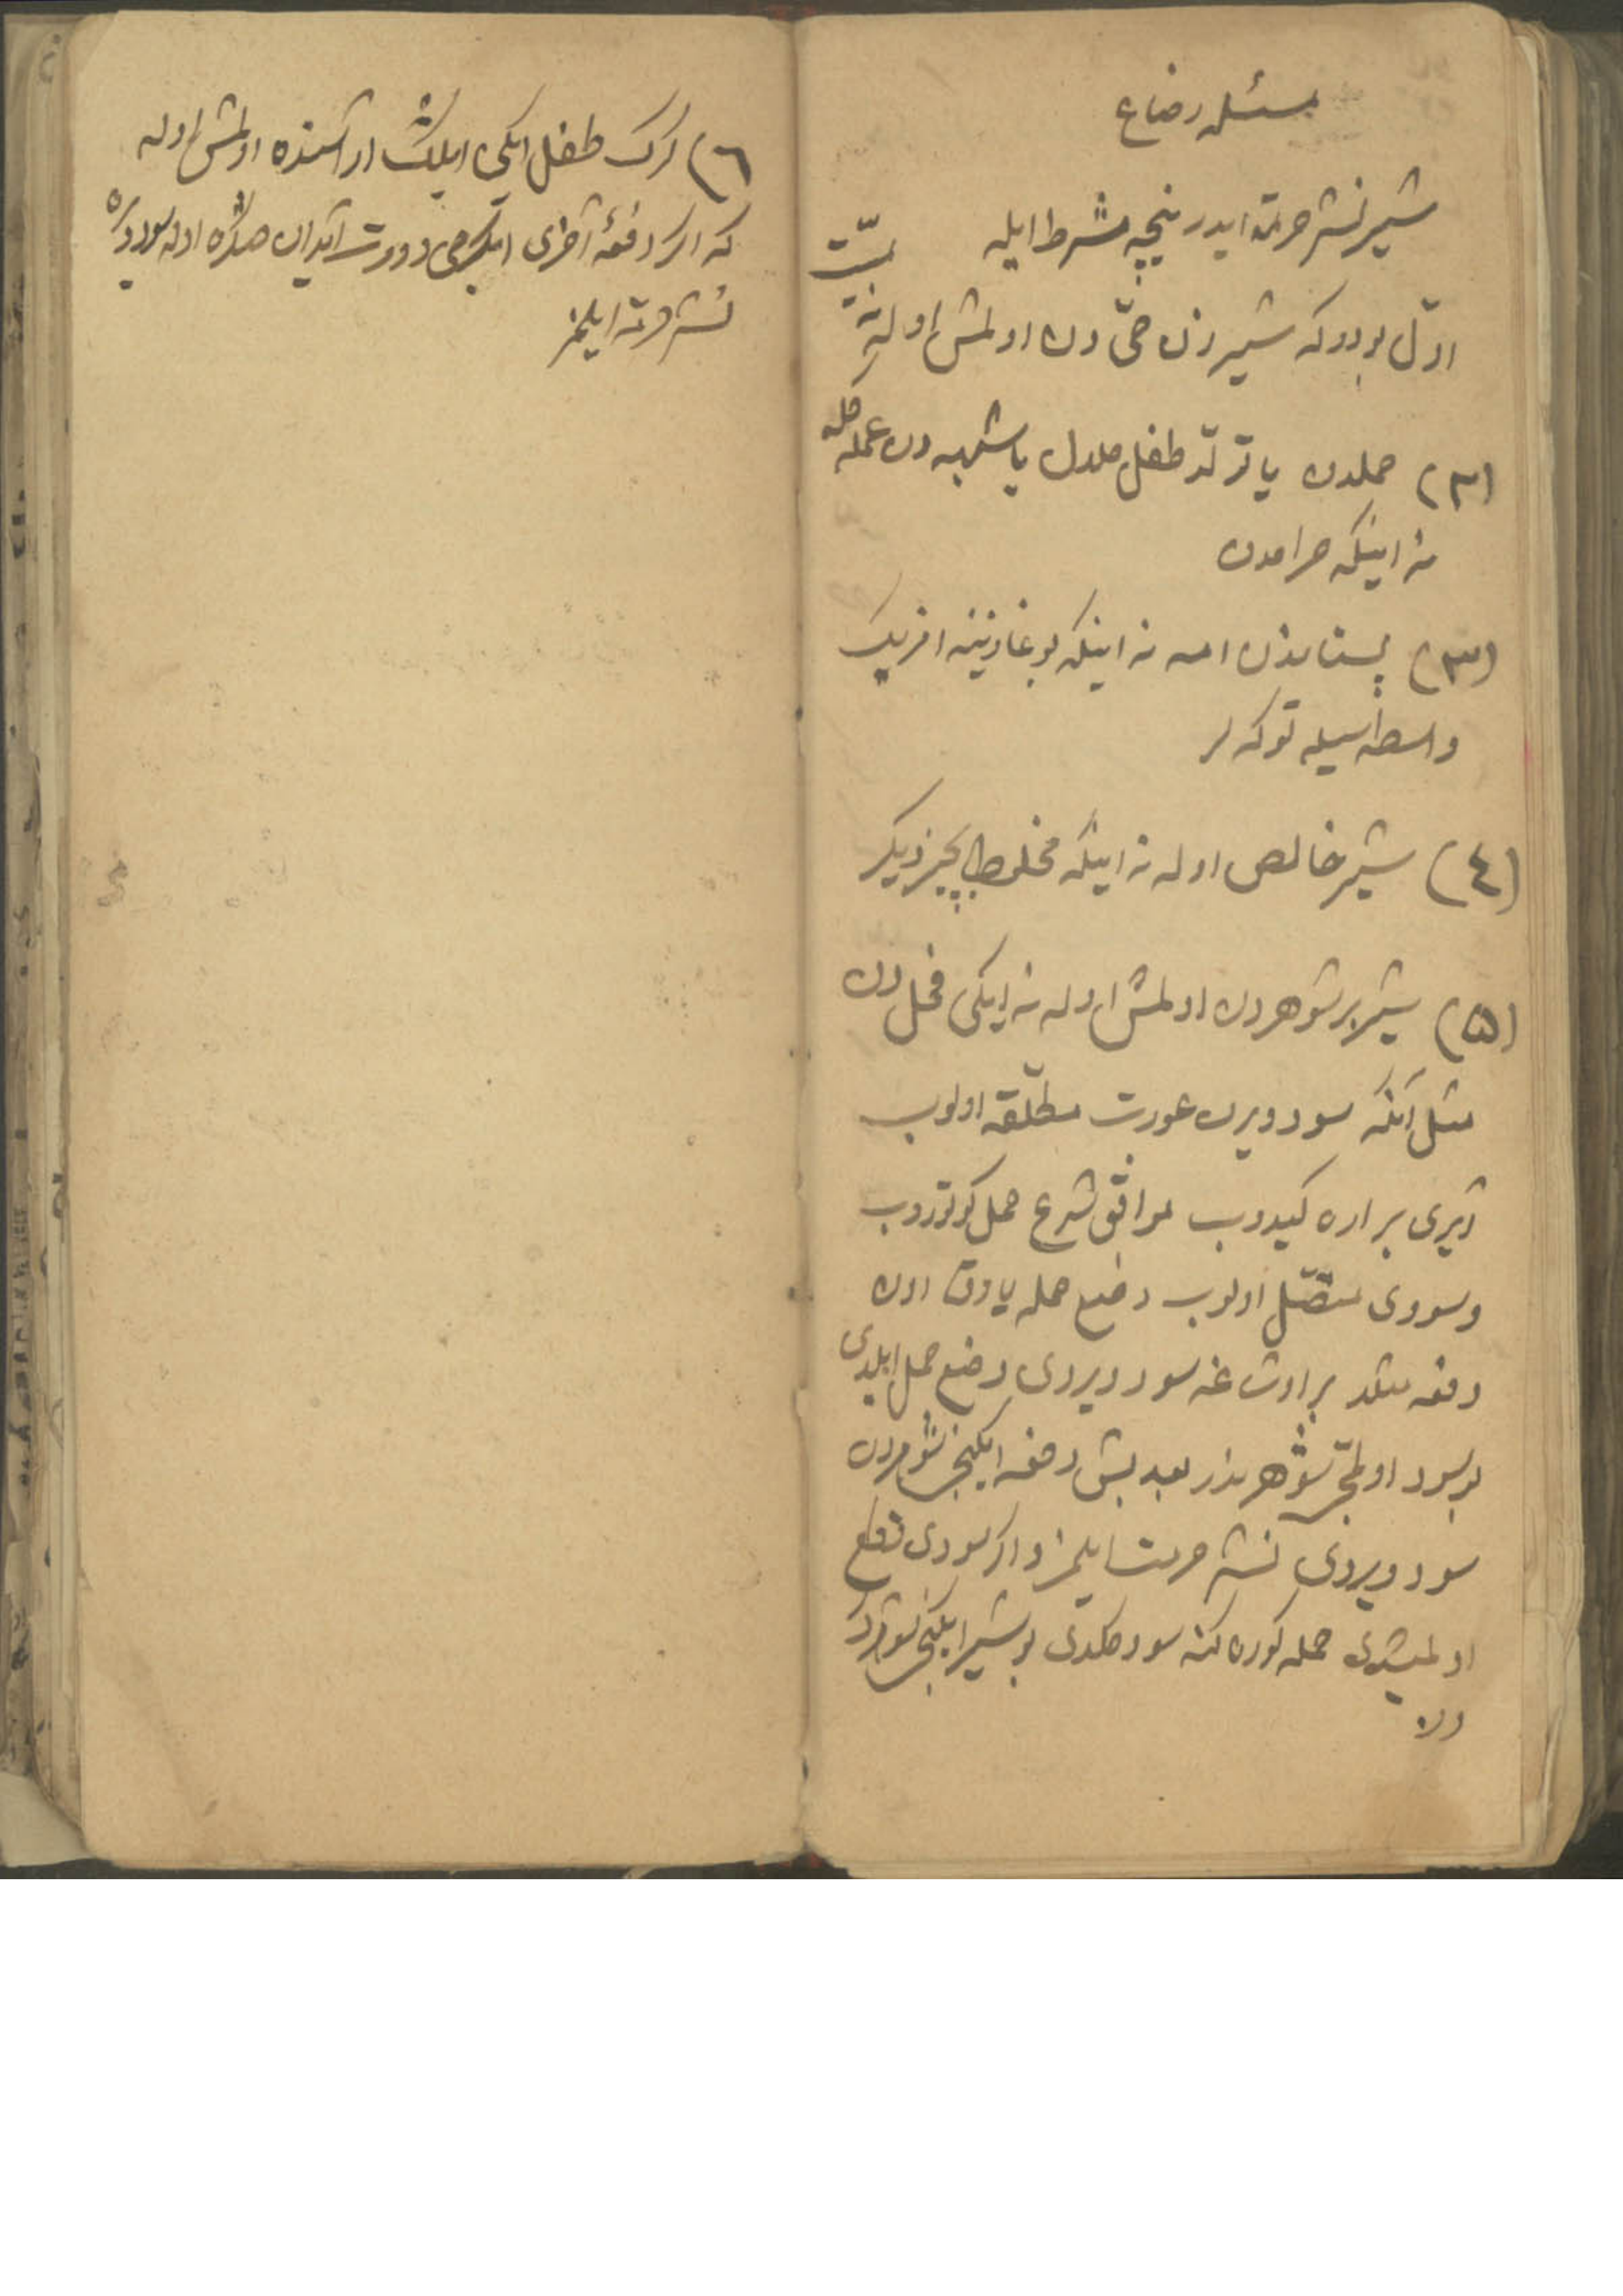 مسئله رضاع
شیر نشر حرمة ایدر نیچه شرط ایله
اوّل بودور که شیر زن حیّ دن اولمش اوله نه میّت
(۲) حملدن یا تولّد طفل حلال یا شبهه دن عمله
نه اینکه حرامدن
(۳) پستاندن امه نه اینکه بوغازینه
واسطه سیله توکه لر
(٤) شیر خالص اوله نه اینکه مخلوط بچیز دیگر
(۵) شیر بر شوهر دن اولمش اوله نه ایکی فحل دن
مثل آنکه سود ویرن عورت مطلّقه اولوب
آیری بر اره گیدوب موافق شرع حمل گوتوروب
وسودی متصّل اولوب وضع حمله یاوق اون
دفعه مثلا بر اوشاغه سود ویردی وضع حمل ایلدی
بو سود اولمجی شوهریندندر بعد بش دفعه ایکینجی شوهردن
سود ویردی نشر حرمت ایلمز و اگر سودی قطع
اولمیشدی حمله گوره گنه سود گلدی بو شیر ایکینجی شوهردن
در
(٦) گرک طفل ایکی ایلیک آراسنده اولمش اوله
که اگر دفعهٔ آخری ایگرمی دورت آیدان صکره اوله سود ویره
نشر حرمة ایلمز